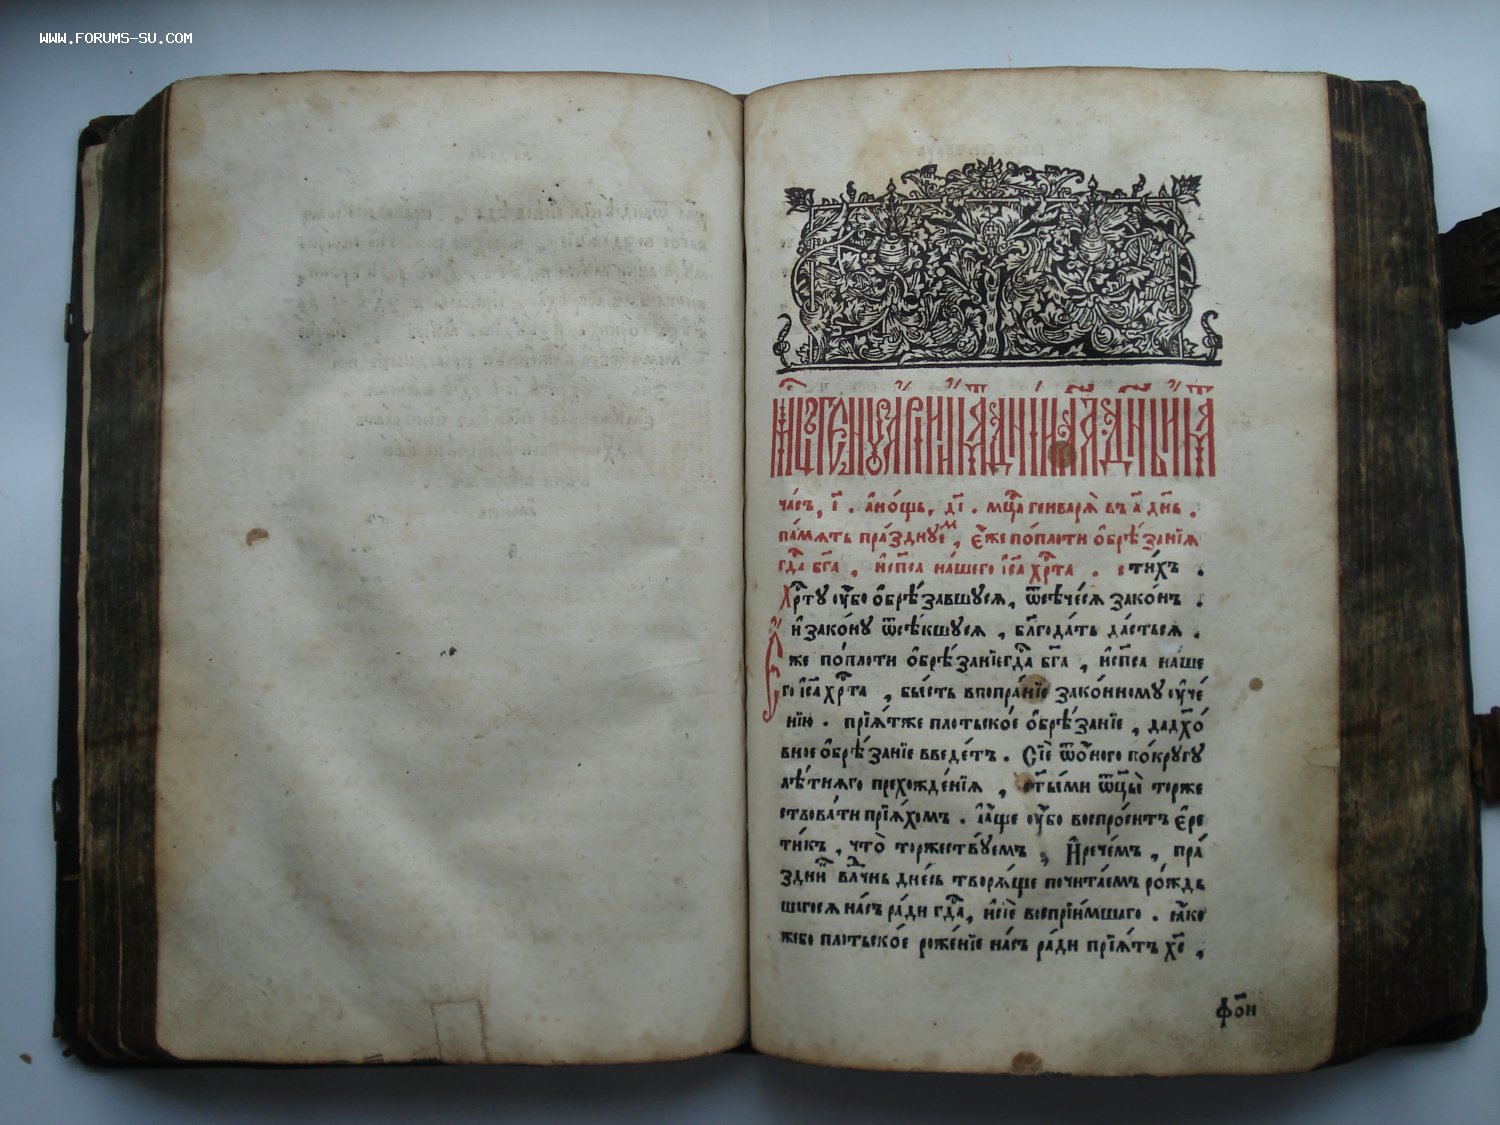 WWW.FORUMS-SU.COM
мцⷭ҇ъ генꙋарїй имать дни л҃а дн҃ь имать
ча́съ, і҃. а҆но́щь, д҃і. мцⷭ҇а генваря̀ въ а҃ дн҃ь.
па́мять пра́зднуеⷨ, є҆́же попло́ти ѻ҆брѣ́занїѧ
гдⷭ҇а бг҃а, и҆сп҃са на́шего і҆с҃а хрⷭ҇та. сти́хъ.
Хрⷭ҇ту ᲂу҆́бо ѻ҆брѣ́завшуся, ѿсѣче́сѧ зако́нъ.
и҆ зако́ну ѿсѣ́кшуся, блг҃ода́ть да́стьсѧ.
Е҆́же попло́ти ѻ҆брѣ́занїе гдⷭ҇а бг҃а, и҆сп҃са на́ше
го і҆с҃а хрⷭ҇та, бы́сть впопра́нїе зако́нному ᲂу҆че́
нїю. прїѧ́тже пло́тьско́е ѻ҆брѣ́занїе, дадх҃о́
вное ѻ҆брѣ́занїе введе́тъ. Сїѐ ѿо҆́ного по́кругу
лѣ́тнѧго прехожде́нїѧ, ст҃ы́ми ѿц҃ы̀ торже
ствова́ти прїѧ́хомъ. а҆́ще ᲂу҆́бо воспро́ситъ є҆ре
ти́къ, что̀ торжеству́емъ, И҆ рече́мъ, пра́
здни̑ⷦ҇ влⷣчнь дне́сь творѧ́ще почита́емъ ро́ждь
шагосѧ на́съ ра́ди гдⷭ҇а, и҆ сїѐ воспрїи́мшаго. ꙗ҆́ко
жебо пло́тьско́е роже́нїе на́съ ра́ди прїѧ́тъ хе҃,
фо҃н